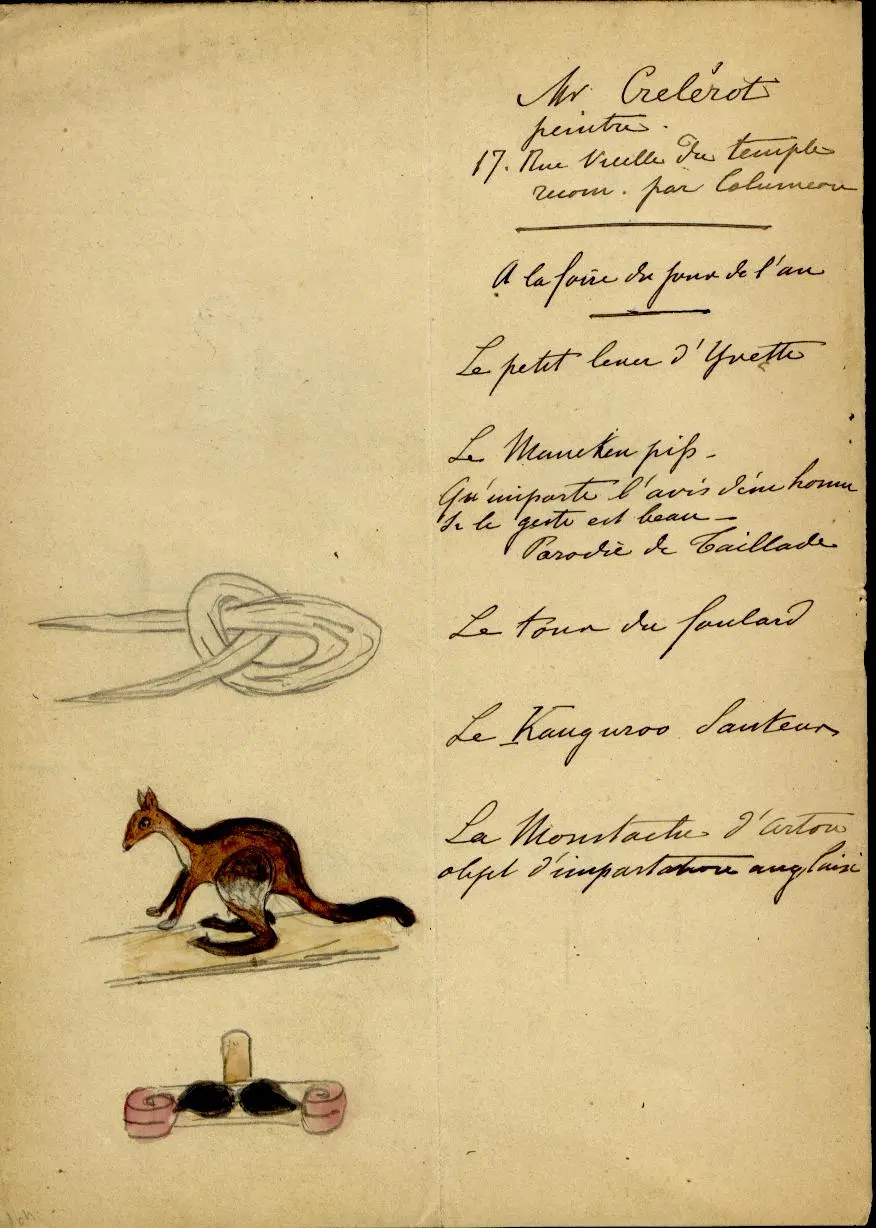 Mr Crelérot
peintre.
17. Rue Vieille du temple
recom. par Columeau
A la foire du jour de l'an
Le petit lever d'Yvette
Le Maneken piss -
Qu'importe l'avis d'un homme
Si le geste est beau -
Parodie de Taillade
Le tour du foulard
Le Kanguroo Sauteur
La Moustache d'Arton
objet d'importation anglaise